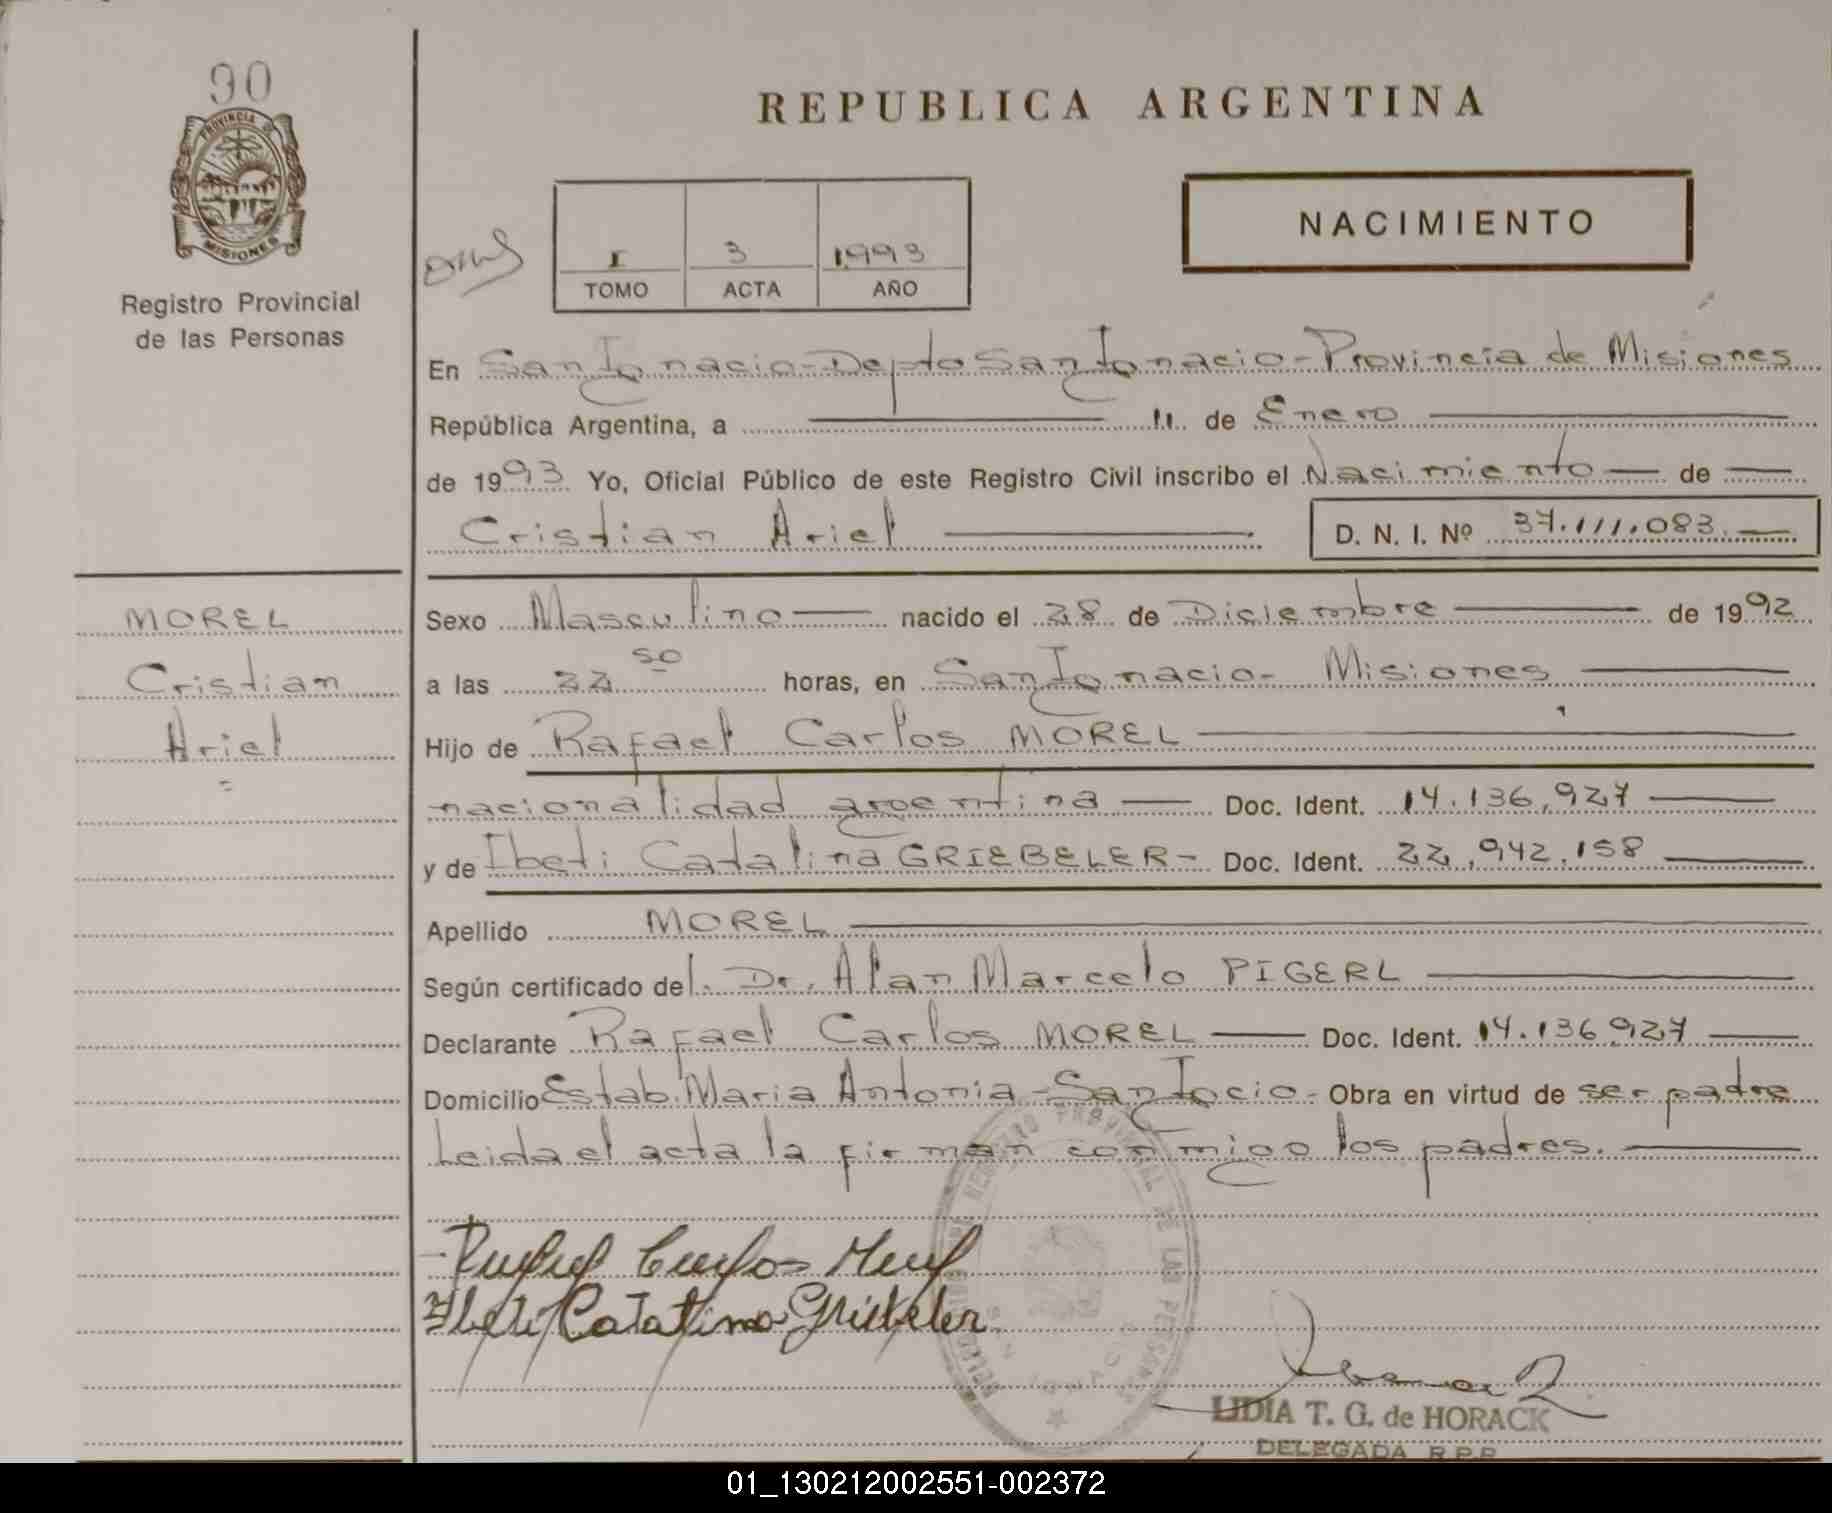 90
PROVINCIA DE
MISIONES
Registro Provincial
de las Personas
REPUBLICA ARGENTINA
NACIMIENTO
I 3 1993
TOMO ACTA AÑO
En San Ignacio-Depto San Ignacio-Provincia de Misiones
República Argentina, a 11 de Enero
de 1993 Yo, Oficial Público de este Registro Civil inscribo el Nacimiento de
Cristian Ariel D. N. I. Nº 37.111.083.
MOREL
Cristian
Ariel
Sexo Masculino nacido el 28 de Diciembre de 1992
a las 22 50 horas, en San Ignacio- Misiones
Hijo de Rafael Carlos MOREL
nacionalidad argentina Doc. Ident. 14.136.927
y de Ibeti Catalina GRIEBELER- Doc. Ident. 22.942.158
Apellido MOREL
Según certificado del. Dr. Alan Marcelo PIGERL
Declarante Rafael Carlos MOREL Doc. Ident. 14.136.927
Domicilio Estab. Maria Antonia-San Igcio- Obra en virtud de ser padre
Leida el acta la firman conmigo los padres.
Rafael Carlos Morel
Ibeti Catalina Griebeler
REGISTRO PROVINCIAL DE LAS PERSONAS
SAN IGNACIO
LIDIA T. G. de HORACK
DELEGADA R.P.P.
01_130212002551-002372